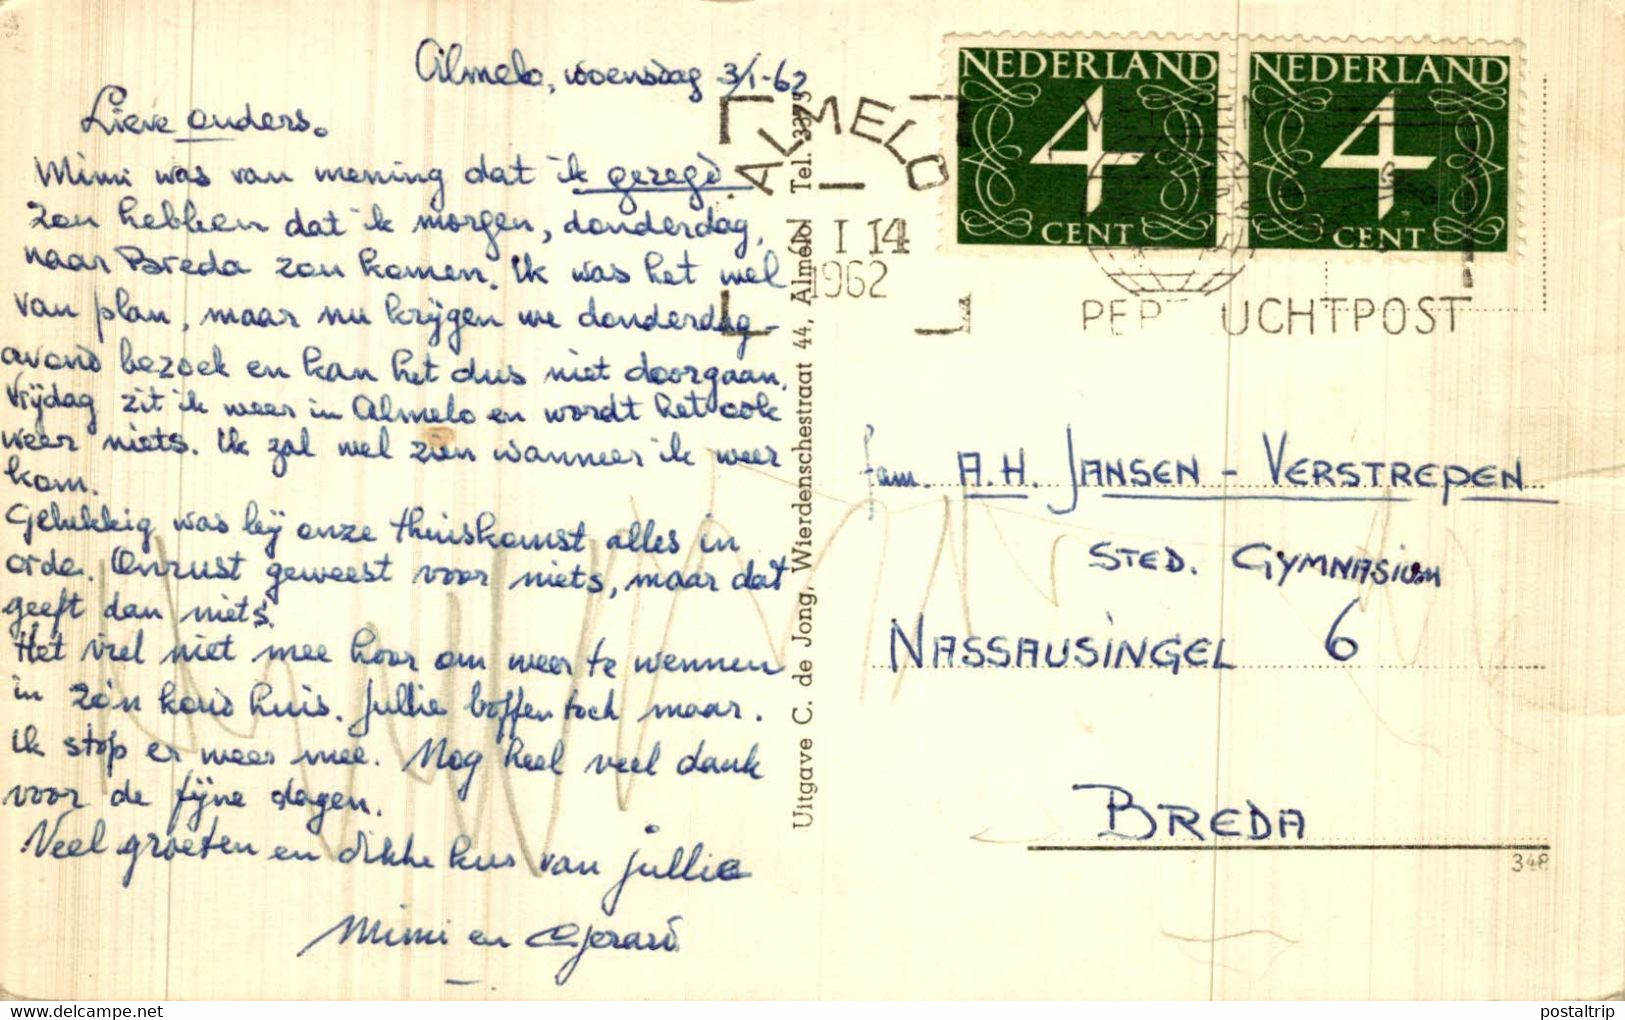 Almelo, woensdag 3/1-62
Lieve ouders.
Mimi was van mening dat ik gezegd
zou hebben dat ik morgen, donderdag,
naar Breda zou komen. Ik was het wel
van plan, maar nu krijgen we donderdag-
avond bezoek en kan het dus niet doorgaan.
Vrijdag zit ik weer in Almelo en wordt het ook
weer niets. Ik zal wel zien wanneer ik weer
kom.
Gelukkig was bij onze thuiskomst alles in
orde. Onrust geweest voor niets, maar dat
geeft dan niets.
Het viel niet mee hoor om weer te wennen
in zo'n koud huis. Jullie boffen toch maar.
Ik stop er weer mee. Nog heel veel dank
voor de fijne dagen.
Veel groeten en dikke kus van jullie
Mimi en Gerard
Uitgave C. de Jong, Wierdenschestraat 44, Almelo Tel. 3373
ALMELO
I 14
1962
NEDERLAND
4
CENT
NEDERLAND
4
CENT
PER LUCHTPOST
fam. A.H. JANSEN - VERSTREPEN
STED. GYMNASIUM
NASSAUSINGEL 6
BREDA
348
https://www.delcampe.net
postaltrip